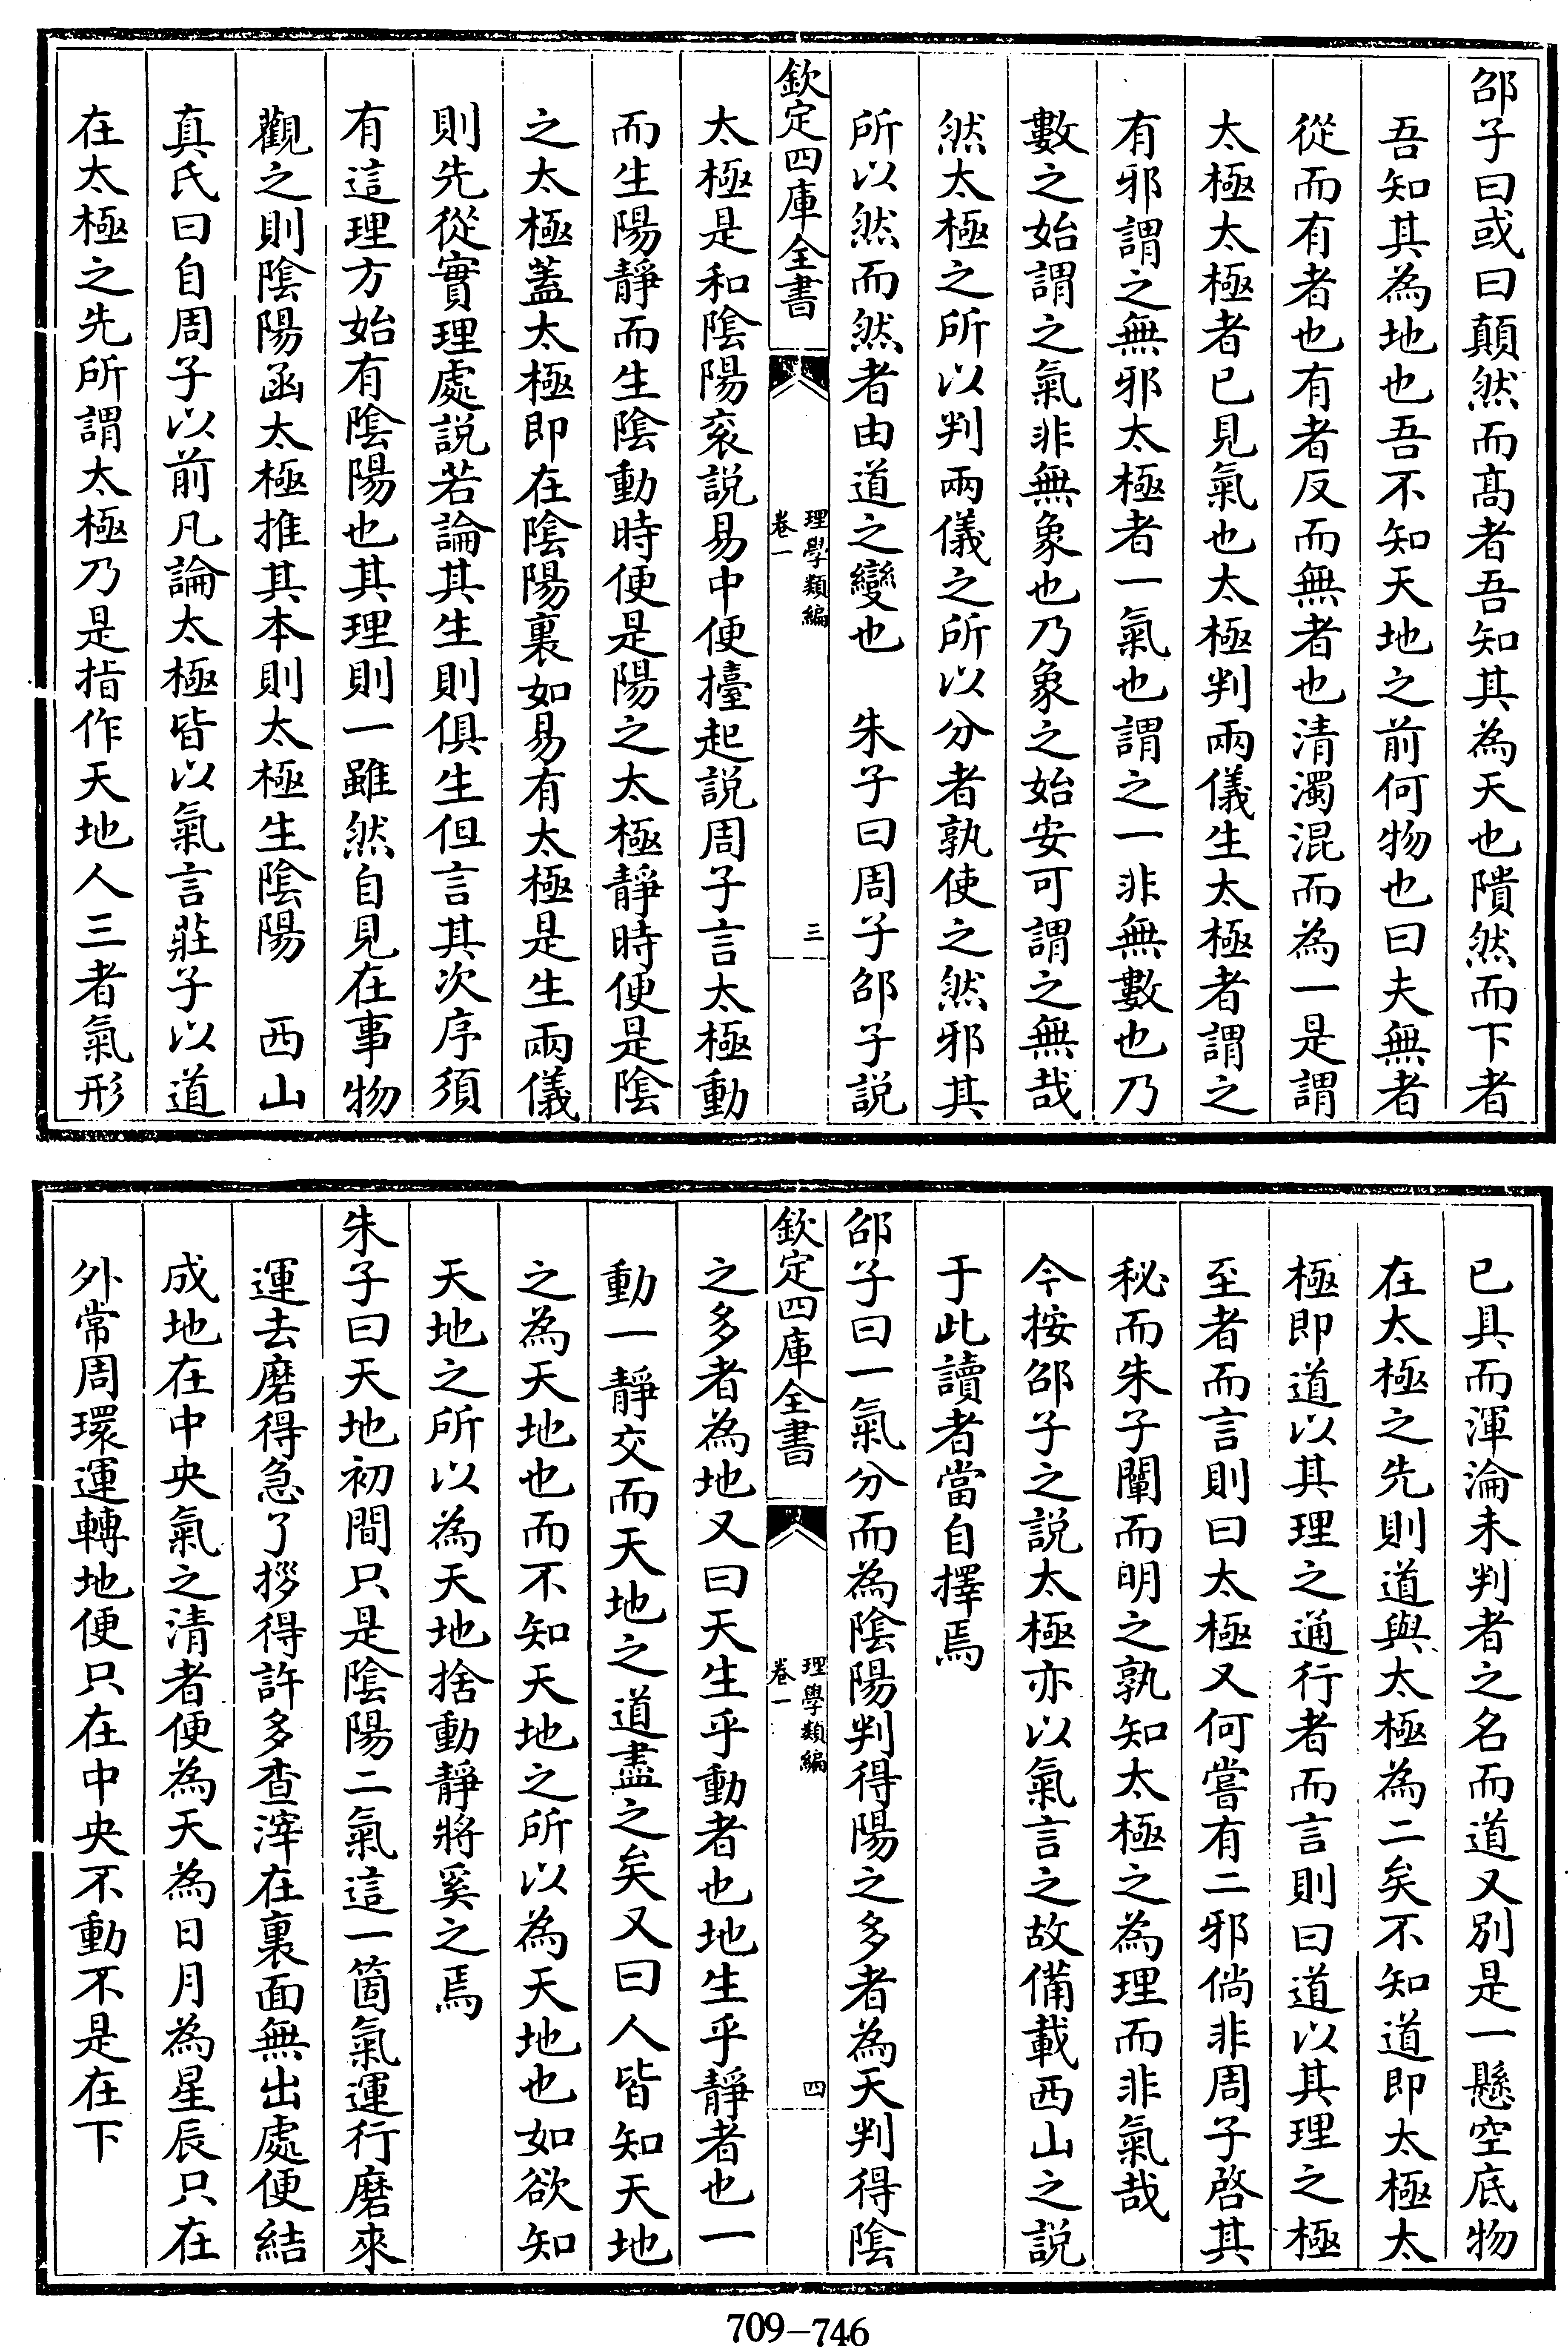 邵子曰或曰顛然而髙者吾知其為天也隤然而下者
吾知其為地也吾不知天地之前何物也曰夫無者
從而有者也有者反而無者也清濁混而為一是謂
太極太極者已見氣也太極判兩儀生太極者謂之
有邪謂之無邪太極者一氣也謂之一非無數也乃
數之始謂之氣非無象也乃象之始安可謂之無哉
然太極之所以判兩儀之所以分者孰使之然邪其
所以然而然者由道之變也　朱子曰周子邵子説
欽定四庫全書
理學類編
卷一
三
太極是和陰陽衮説易中便擡起説周子言太極動
而生陽靜而生陰動時便是陽之太極靜時便是陰
之太極蓋太極即在陰陽裏如易有太極是生兩儀
則先從實理處説若論其生則俱生但言其次序須
有這理方始有陰陽也其理則一雖然自見在事物
觀之則陰陽函太極推其本則太極生陰陽　西山
真氏曰自周子以前凡論太極皆以氣言莊子以道
在太極之先所謂太極乃是指作天地人三者氣形
已具而渾淪未判者之名而道又別是一懸空底物
在太極之先則道與太極為二矣不知道即太極太
極即道以其理之通行者而言則曰道以其理之極
至者而言則曰太極又何嘗有二邪倘非周子啓其
秘而朱子闡而明之孰知太極之為理而非氣哉
今按邵子之説太極亦以氣言之故備載西山之説
于此讀者當自擇焉
邵子曰一氣分而為陰陽判得陽之多者為天判得陰
欽定四庫全書
理學類編
卷一
四
之多者為地又曰天生乎動者也地生乎靜者也一
動一靜交而天地之道盡之矣又曰人皆知天地
之為天地也而不知天地之所以為天地也如欲知
天地之所以為天地捨動靜將奚之焉
朱子曰天地初間只是陰陽二氣這一箇氣運行磨來
運去磨得急了拶得許多查滓在裏面無出處便結
成地在中央氣之清者便為天為日月為星辰只在
外常周環運轉地便只在中央不動不是在下
709-746